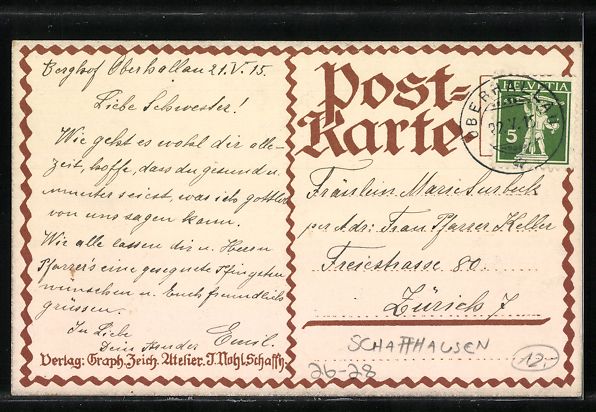 Berghof Oberhallau 21.V.15.
Liebe Schwester!
Wie geht es wohl dir alle-
zeit, hoffe, dass du gesund u.
munter seiest, was ich gottlob
von uns sagen kann.
Wir alle lassen dir u. Herrn
Pfarrer's eine gesegnete Pfingsten
wünschen u. Euch freundlich
grüssen.
In Liebe
Dein Bruder Emil.
Verlag: Graph. Zeich. Atelier. J. Nohl. Schaffh.
Post=
Karte
HELVETIA
5
OBERHALLAU
Fräulein Marie Surbeck
per Adr: Frau Pfarrer Keller
Freiestrasse 80.
Zürich 7
SCHAFFHAUSEN
26-28
12.-